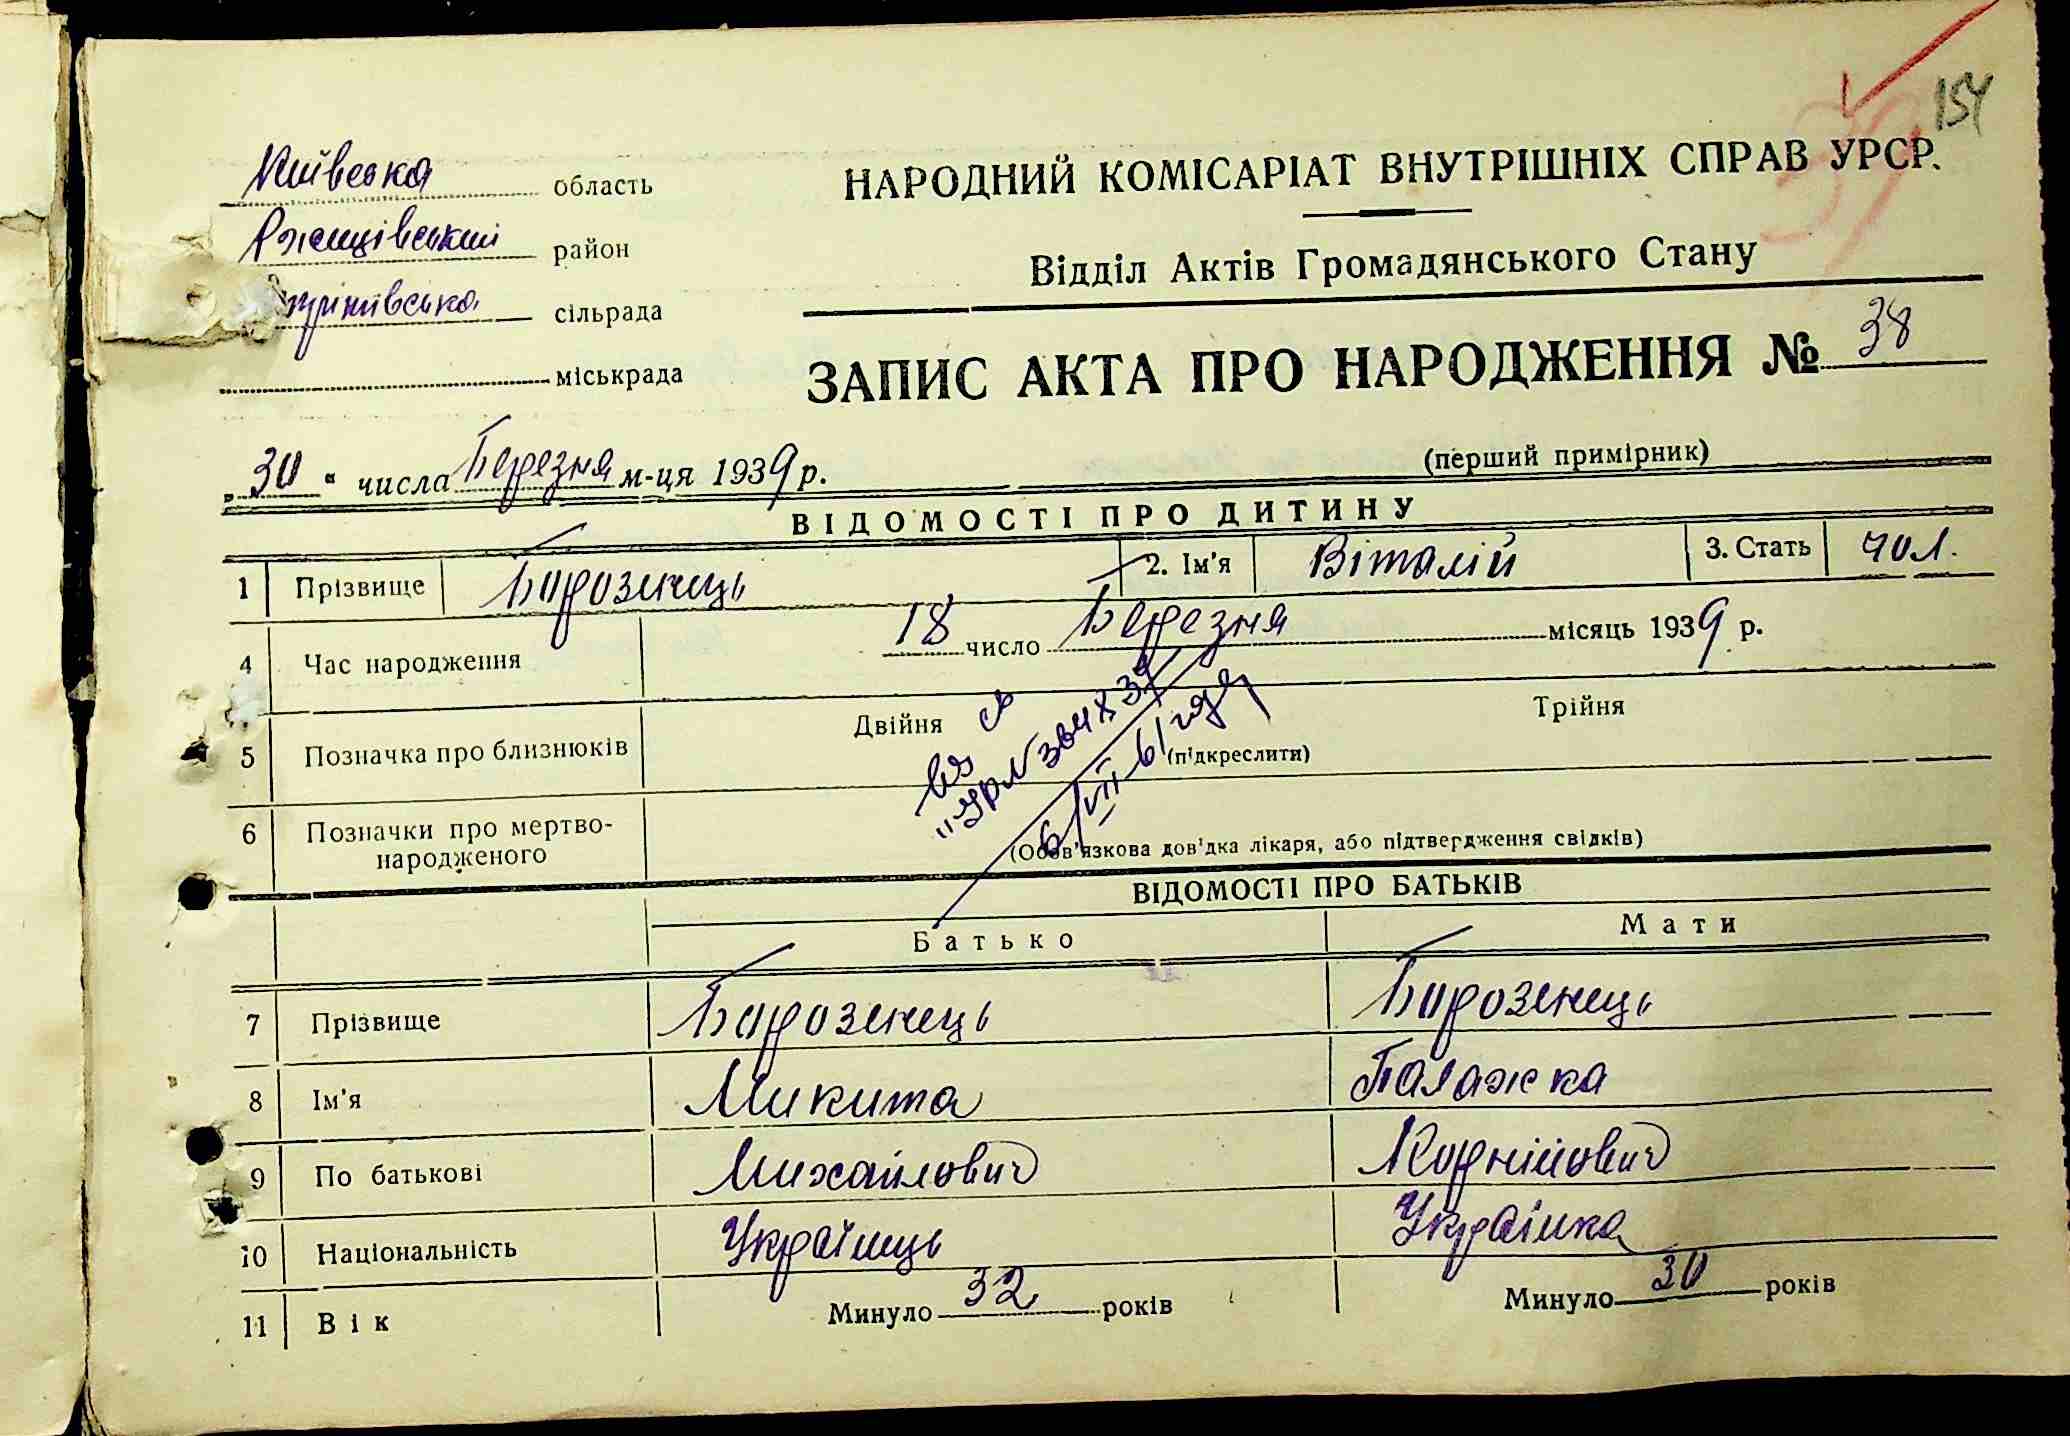 154
39
Київська область
НАРОДНИЙ КОМІСАРІАТ ВНУТРІШНІХ СПРАВ УРСР.
Ржищівський район
Відділ Актів Громадянського Стану
сільрада
міськрада
ЗАПИС АКТА ПРО НАРОДЖЕННЯ № 38
„30“ числа Березня м-ця 1939 р.
(перший примірник)
ВІДОМОСТІ ПРО ДИТИНУ
1 Прізвище Борозенець 2. Ім'я Віталій 3. Стать чол.
4 Час народження 18 число Березня місяць 1939 р.
5 Позначка про близнюків Двійня (підкреслити) Трійня
6/VII-61 года
6 Позначки про мертво-
народженого
(Обов'язкова дов'дка лікаря, або підтвердження свідків)
ВІДОМОСТІ ПРО БАТЬКІВ
Батько Мати
7 Прізвище Борозенець Борозенець
8 Ім'я Микита Палажка
9 По батькові Михайлович Корнійович
10 Національність Українець Українка
11 Вік Минуло 32 років Минуло 30 років